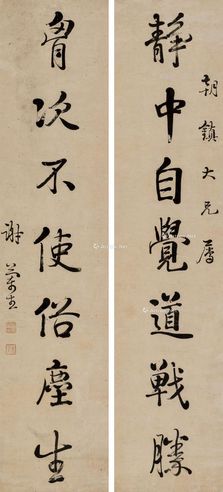 朝鎮大兄屬
静中自覺道戦勝
胷次不使俗塵生
謝蘭生